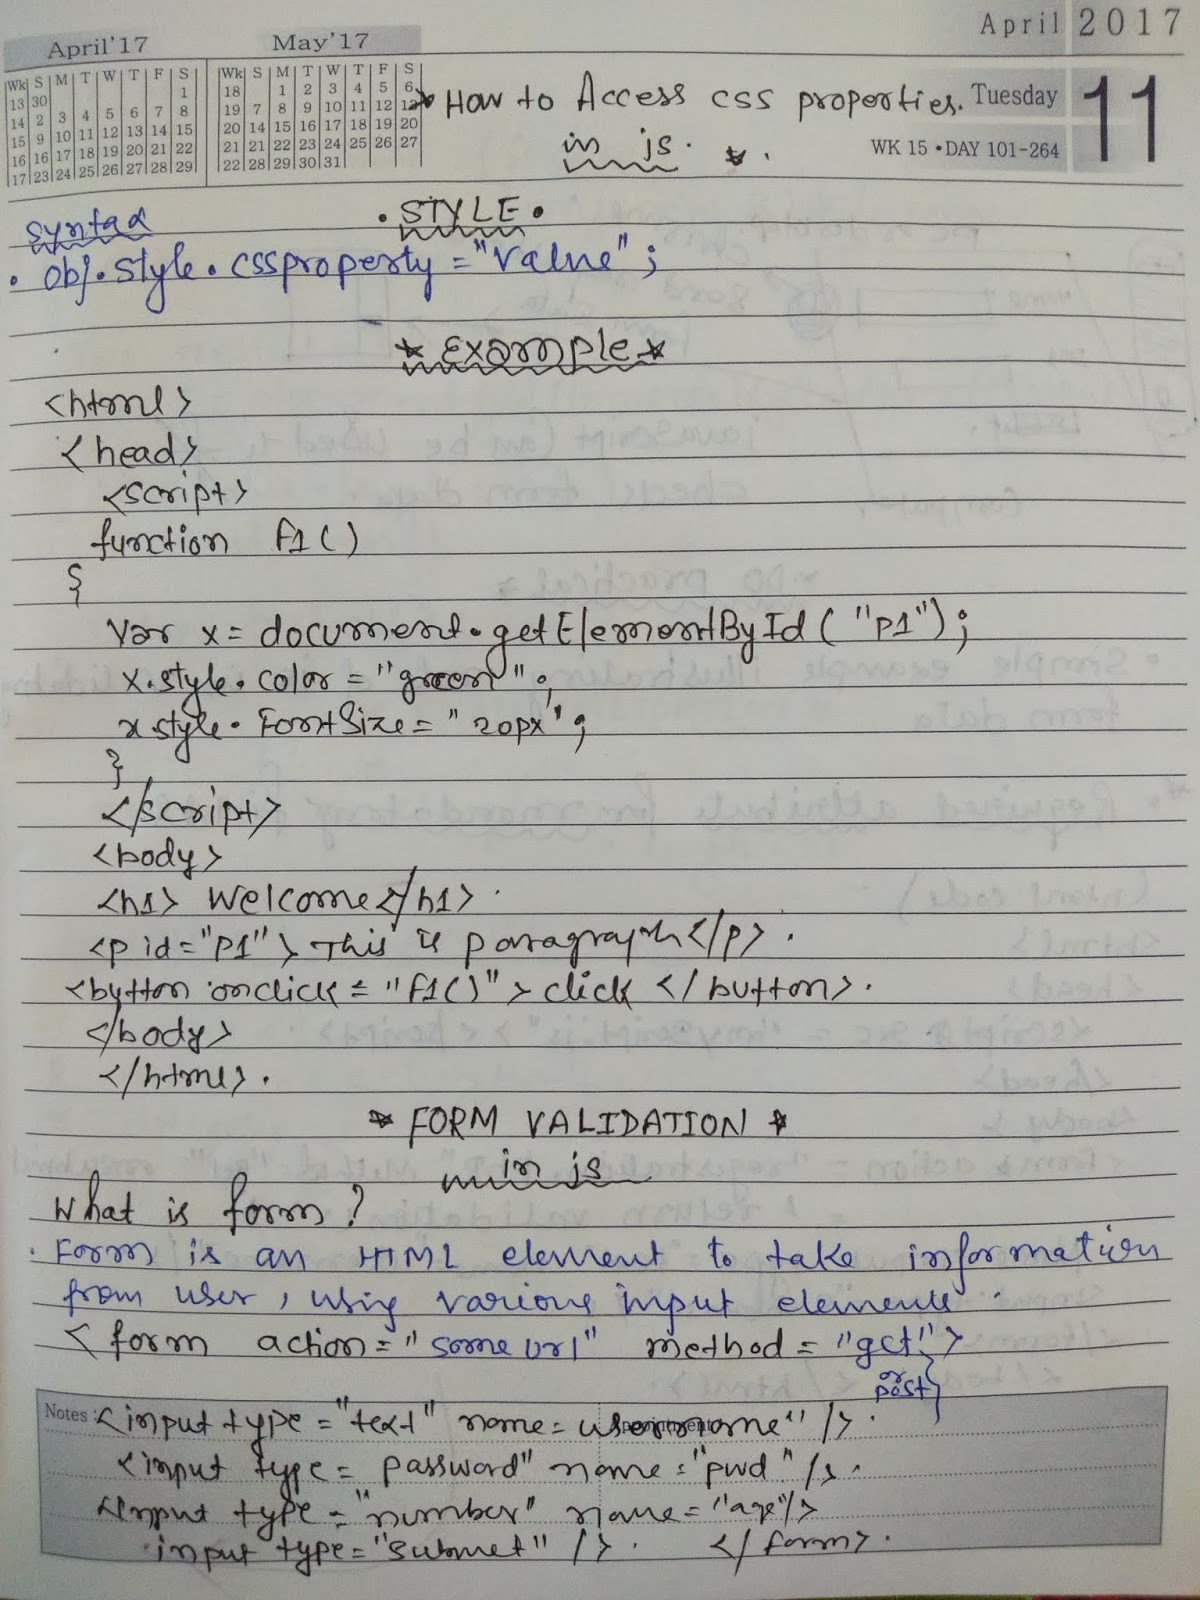 April 2017
April'17
May'17
Wk S M T W T F S
13 30 1
14 2 3 4 5 6 7 8
15 9 10 11 12 13 14 15
16 16 17 18 19 20 21 22
17 23 24 25 26 27 28 29
Wk S M T W T F S
18 1 2 3 4 5 6
19 7 8 9 10 11 12 13
20 14 15 16 17 18 19 20
21 21 22 23 24 25 26 27
22 28 29 30 31
How to Access css properties.
in js.
Tuesday 11
WK 15 • DAY 101-264
• STYLE •
syntax
• obj.style.cssproperty = "value";
* Example *
<html>
<head>
<script>
function f1()
{
var x = document.getElementById("p1");
x.style.color = "green";
x style.FontSize = "20px";
}
</script>
<body>
<h1> Welcome </h1>.
<p id="p1"> This is paragraph</p>.
<button onclick = "f1()"> click </button>.
</body>
</html>.
* FORM VALIDATION *
in js
What is form?
. Form is an HTML element to take information
from user, using various input elements.
< form action = "some url" method = "get">
or
post}
Notes:
<input type = "text" name = username" />.
<input type = password" name = "pwd" />.
<Input type = "number" name = "age"/>
input type = "submet" />. </form>.